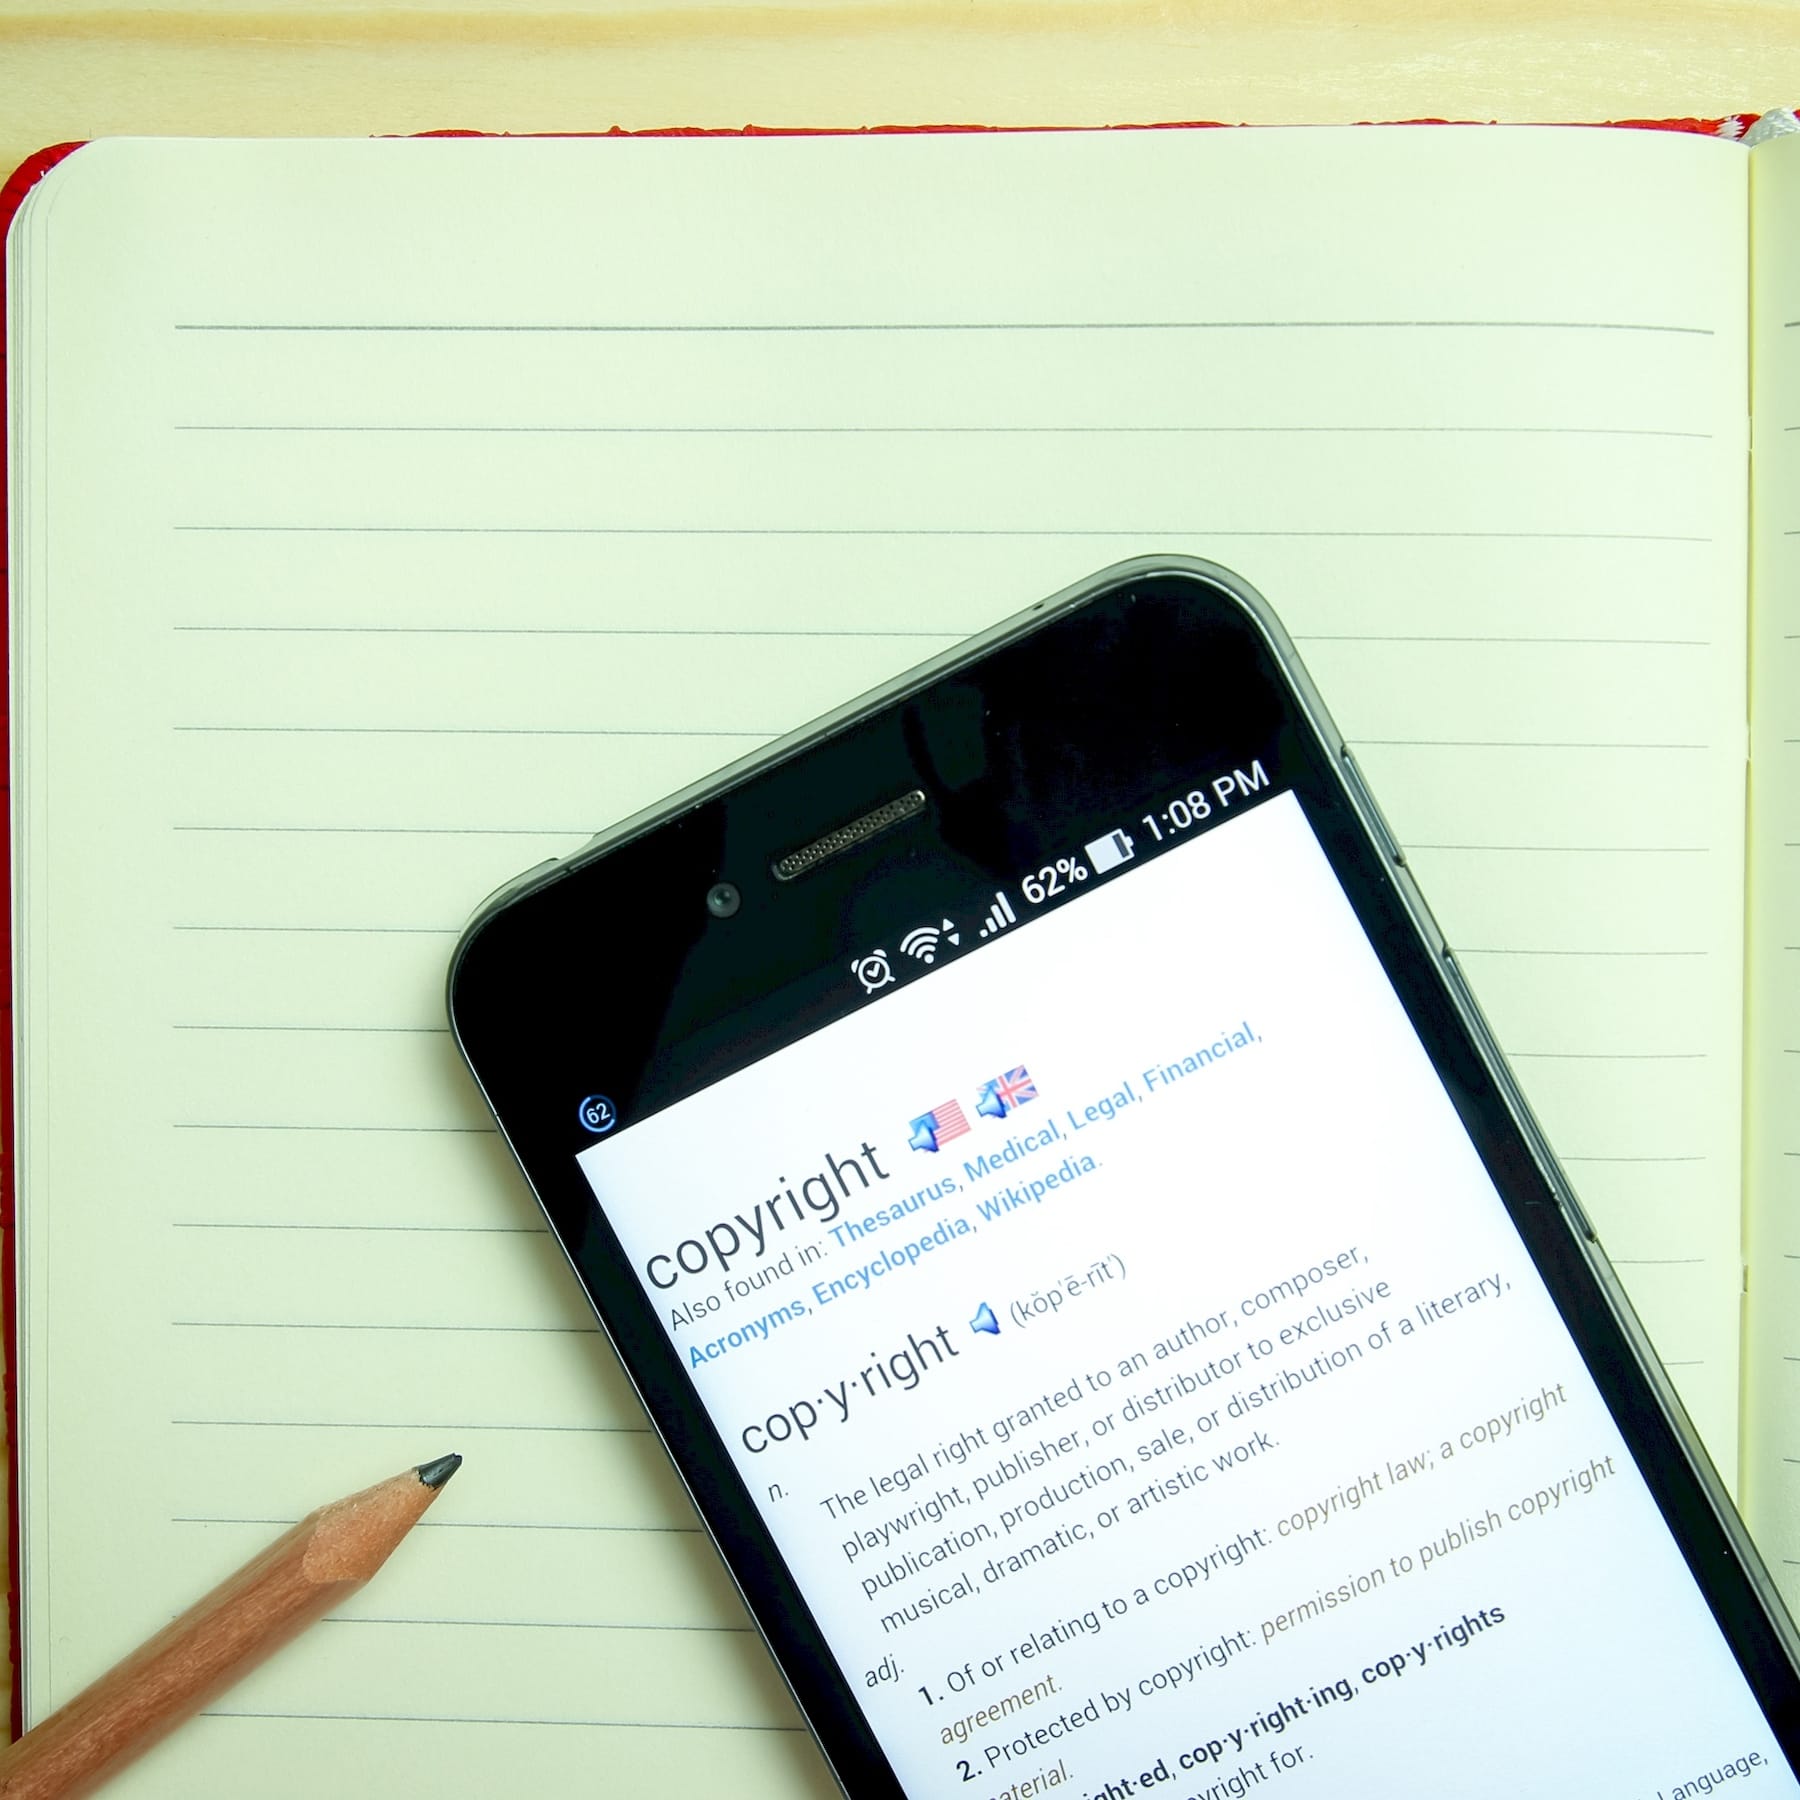 62% 1:08 PM
62
copyright
Also found in: Thesaurus, Medical, Legal, Financial,
Acronyms, Encyclopedia, Wikipedia.
cop·y·right (kŏp′ē-rīt′)
n.
The legal right granted to an author, composer,
playwright, publisher, or distributor to exclusive
publication, production, sale, or distribution of a literary,
musical, dramatic, or artistic work.
adj.
1. Of or relating to a copyright: copyright law; a copyright
agreement.
2. Protected by copyright: permission to publish copyright
aterial.
ght·ed, cop·y·right·ing, cop·y·rights
yright for.
Language,